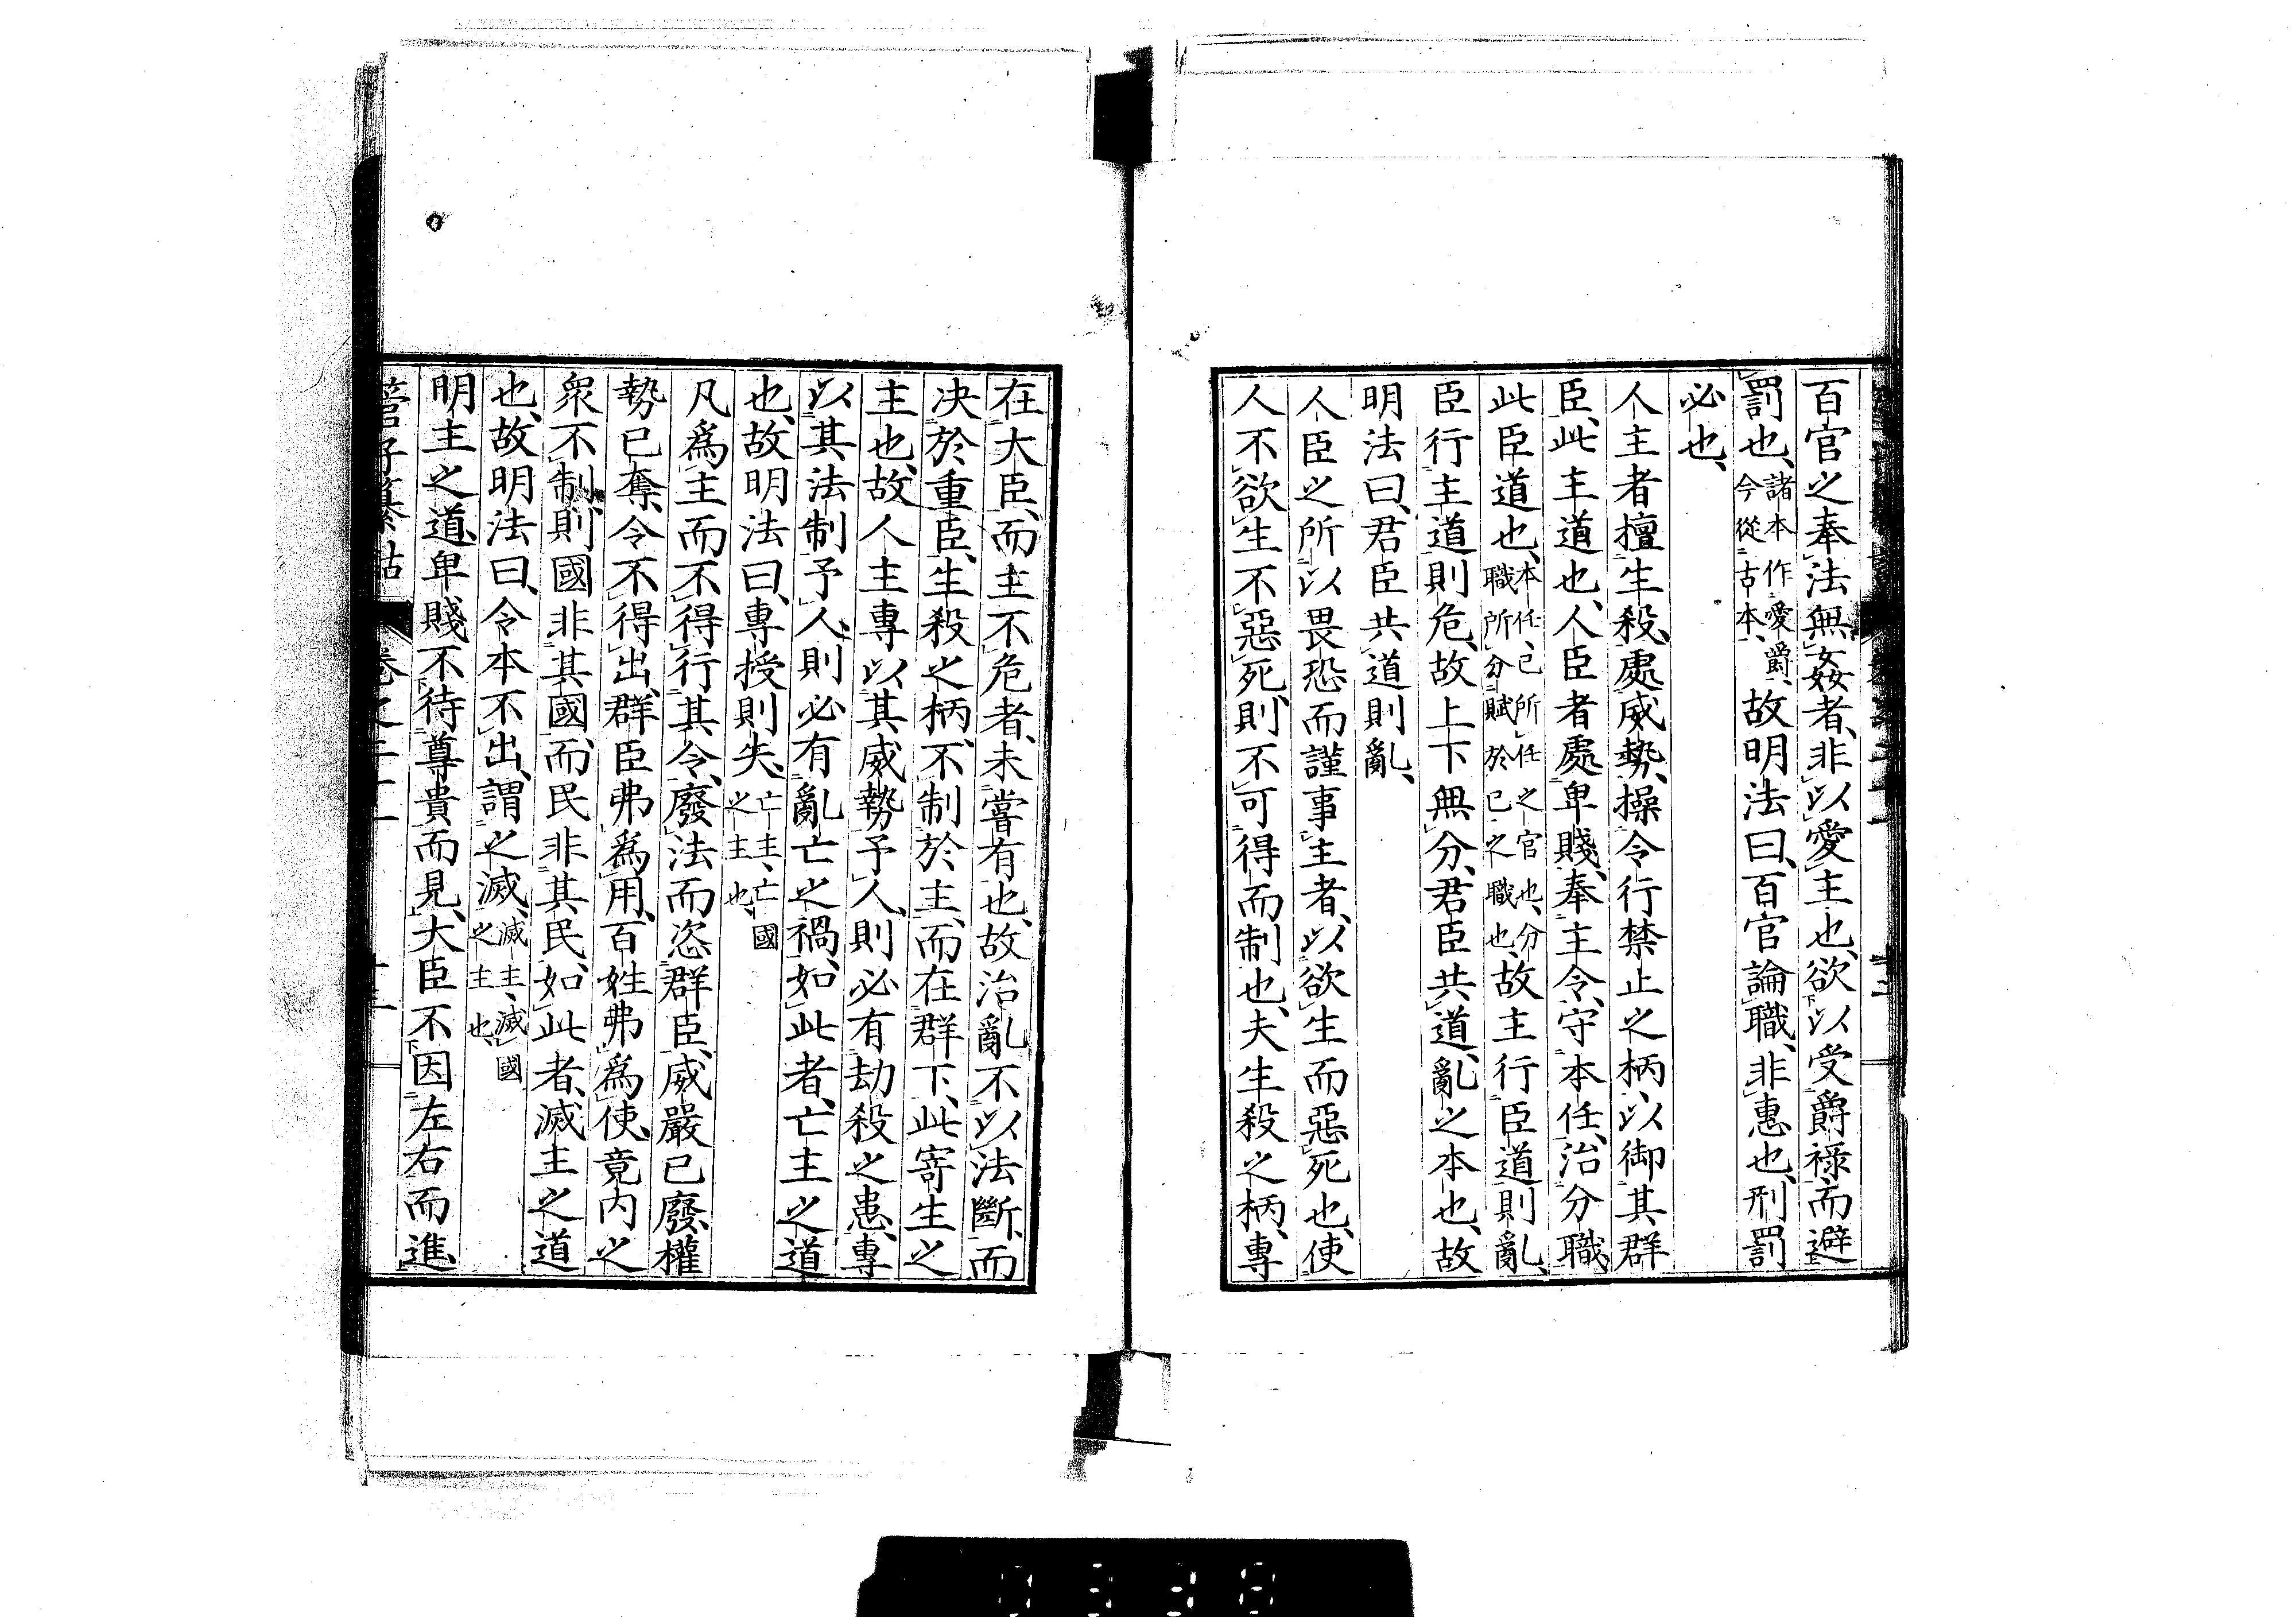 百官之奉法無姦者、非以愛主也、欲以受爵祿而避
罰也、諸本作愛爵、今從古本、故明法曰、百官論職、非惠也、刑罰
必也、
人主者擅生殺、處威勢、操令行禁止之柄、以御其群
臣、此主道也、人臣者處卑賤、奉主令、守本任、治分職、
此臣道也、本任、已所任之官也、分職、所分賦於已之職也、故主行臣道則亂、
臣行主道則危、故上下無分、君臣共道、亂之本也、故
明法曰、君臣共道則亂、
人臣之所以畏恐而謹事主者、以欲生而惡死也、使
人不欲生不惡死、則不可得而制也、夫生殺之柄、專
在大臣、而主不危者、未嘗有也、故治亂不以法斷、而
決於重臣、生殺之柄、不制於主、而在群下、此寄生之
主也、故人主專以其威勢予人、則必有劫殺之患、專
以其法制予人、則必有亂亡之禍、如此者、亡主之道
也、故明法曰、專授則失、亡主、亡國之主也、
凡爲主而不得行其令、廢法而恣群臣、威嚴已廢、權
勢已奪、令不得出、群臣弗爲用、百姓弗爲使、竟內之
衆不制、則國非其國、而民非其民、如此者、滅主之道
也、故明法曰、令本不出、謂之滅、滅主、滅國之主也、
明主之道、卑賤不待尊貴而見、大臣不因左右而進、
管子纂詁 卷之二十一 十三